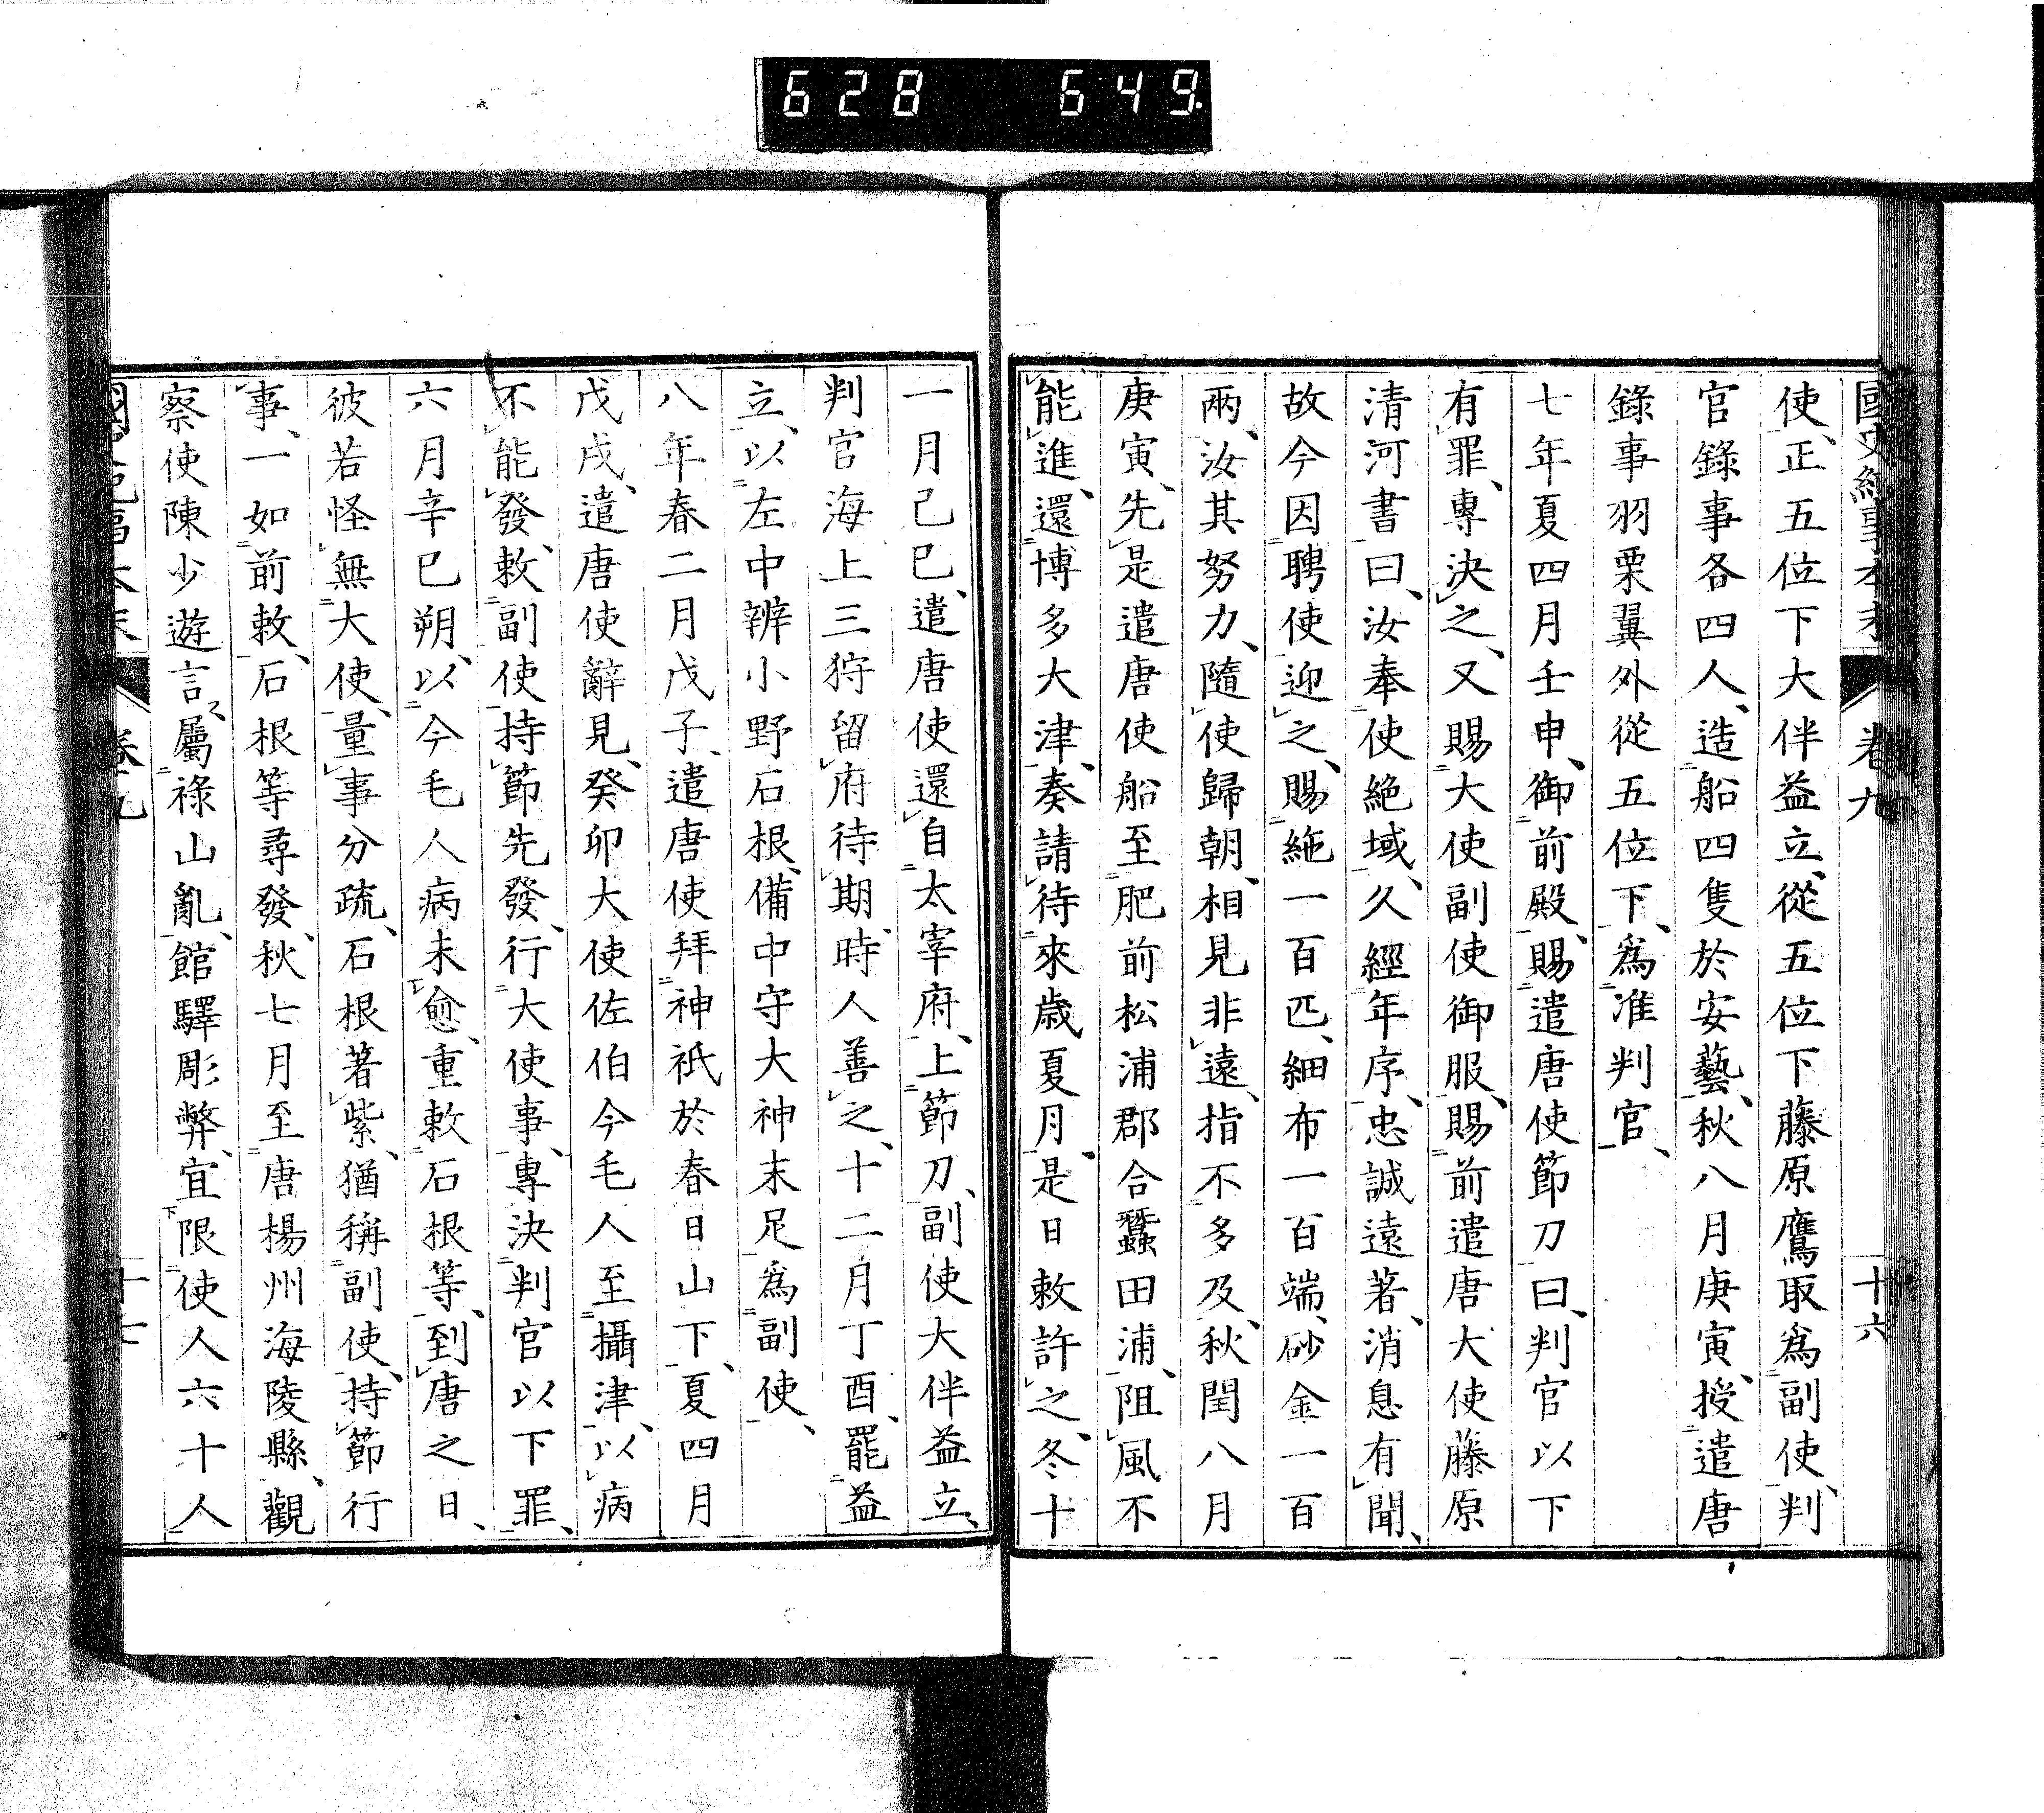 628 649.
國史紀事本末 卷九 十六
使、正五位下大伴益立、從五位下藤原鷹取爲副使、判
官錄事各四人、造船四隻於安藝、秋八月庚寅、授遣唐
錄事羽栗翼外從五位下、爲准判官、
七年夏四月壬申、御前殿、賜遣唐使節刀曰、判官以下
有罪、專決之、又賜大使副使御服、賜前遣唐大使藤原
清河書曰、汝奉使絶域、久經年序、忠誠遠著、消息有聞、
故今因聘使迎之、賜絁一百匹、細布一百端、砂金一百
兩、汝其努力、隨使歸朝、相見非遠、指不多及、秋閏八月
庚寅、先是遣唐使船至肥前松浦郡合蠶田浦、阻風不
能進、還博多大津、奏請待來歲夏月、是日敕許之、冬十
一月己巳、遣唐使還自太宰府、上節刀、副使大伴益立、
判官海上三狩留府待期、時人善之、十二月丁酉、罷益
立、以左中辨小野石根、備中守大神末足爲副使、
八年春二月戊子、遣唐使拜神祇於春日山下、夏四月
戊戌、遣唐使辭見、癸卯大使佐伯今毛人至攝津、以病
不能發、敕副使持節先發、行大使事、專決判官以下罪、
六月辛巳朔、以今毛人病未愈、重敕石根等、到唐之日、
彼若怪無大使、量事分疏、石根著紫、猶稱副使、持節行
事、一如前敕、石根等尋發、秋七月至唐楊州海陵縣、觀
察使陳少遊言、屬祿山亂、館驛彫弊、宜限使人六十人
國史紀事本末 卷九 十七